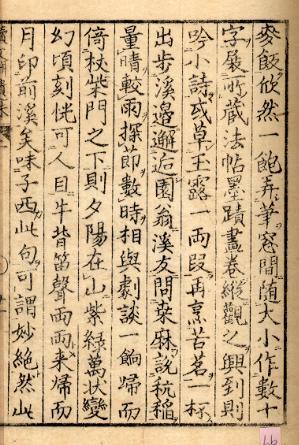 麥飯欣然一飽弄筆窓間随大小作數十
字展所蔵法帖墨蹟畫卷縱觀之興到則
吟小詩或草玉露一兩段再烹苦茗一杯
出步溪邉邂逅園翁溪友問桒麻說秔稲
量晴較雨探節數時相與劇談一餉帰而
倚杖柴門之下則夕陽在山紫緑萬状變
幻頃刻恍可人目牛背笛聲兩兩来帰而
月印前溪矣味子西此句可謂妙絶然此